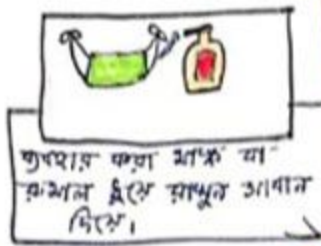 ব্যবহার করা মাস্ক বা
রুমাল ধুয়ে রাখুন সাবান
দিয়ে।